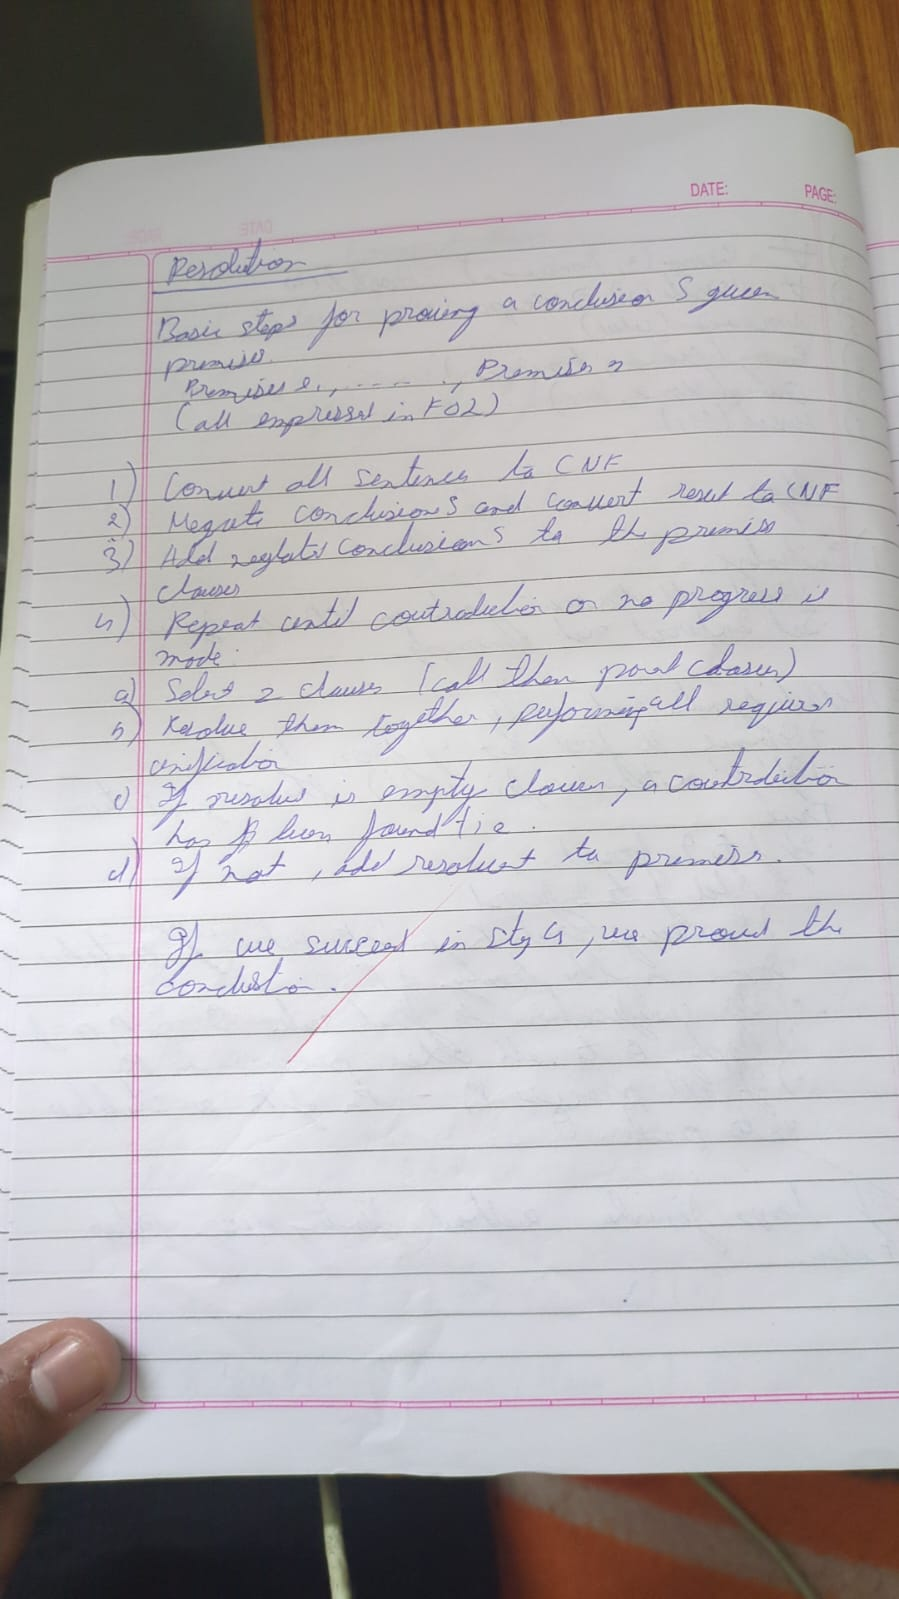 DATE: PAGE:
Resolution
Basic steps for proving a conclusion S given
premises
Premises 1, ......, Premises n
(all expressed in FOL)
1) Convert all sentences to CNF
2) Negate conclusion S and convert result to CNF
3) Add negated conclusion S to the premises
clauses
4) Repeat until contradiction or no progress is
made:
a) Select 2 clauses (call them parent clauses)
b) Resolve them together, performing all required
unification
c) If resolve is empty clause, a contradiction
has been found
d) If not, add resolvent to premises.
If we succeed in step 4, we proved the
conclusion.